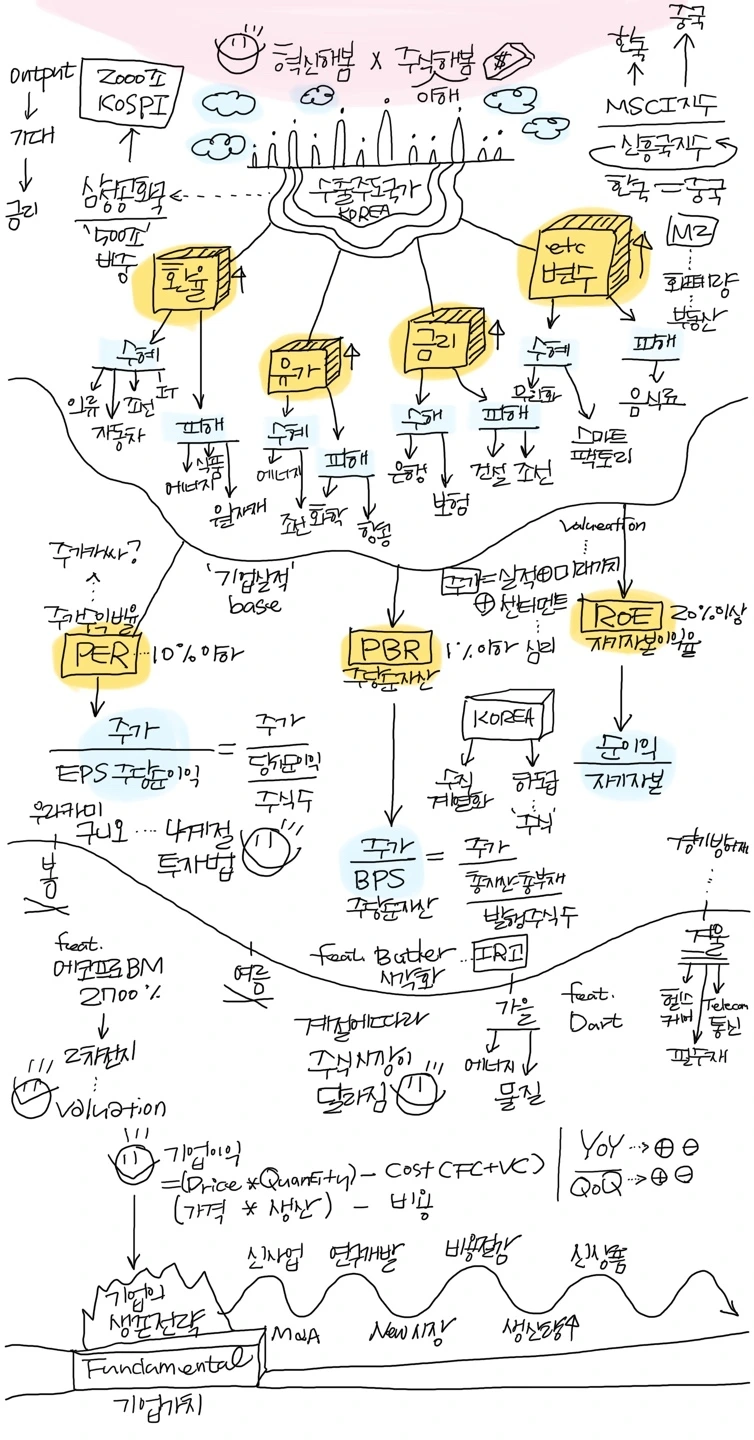 혁신해봄 x 주식해봄 $
이해
output
기대
금리
2000포
KOSPI
삼성공화국
'500조'
비중
수출주도국가
KOREA
한국
중국
MSCI지수
신흥국지수
한국 = 중국
M2
화폐량
부동산
환율
수혜
의류
자동차
조선
IT
피해
에너지
식품
원자재
유가
수혜
에너지
조선
피해
화학
항공
금리
수혜
은행
보험
피해
건설
조선
etc
변수
수혜
스마트
팩토리
피해
음식료
'기업실적'
base
주가가싸?
주가수익비율
PER
10%이하
주가
EPS 주당순이익
=
주가
당기순이익
주식수
주가=실적⊕미래가치
⊕ 센터멘트
심리
PBR
1%이하
주당순자산
주가
BPS
주당순자산
=
주가
총자산-총부채
발행주식수
KOREA
수직
계열화
하도급
'주식'
valueation
RoE
20%이상
자기자본이익율
순이익
자기자본
우라카미
구니오 ... 4계절
투자법
봄
feat.
에코프로BM
2700%
2차전지
valuation
여름
계절에따라
주식시장이
달라짐
feat. Butler
시각화
IR고
가을
에너지
물질
feat.
Dart
경기방어재
겨울
헬스
케어
필수재
Telecom
통신
기업이익
=(Price *Quantity) - Cost (FC+VC)
(가격 * 생산) - 비용
YoY ⊕ ⊖
QoQ ⊕ ⊖
신사업
연구개발
비용절감
신상품
M&A
New시장
생산량↑
기업의
생존전략
Fundamental
기업가치